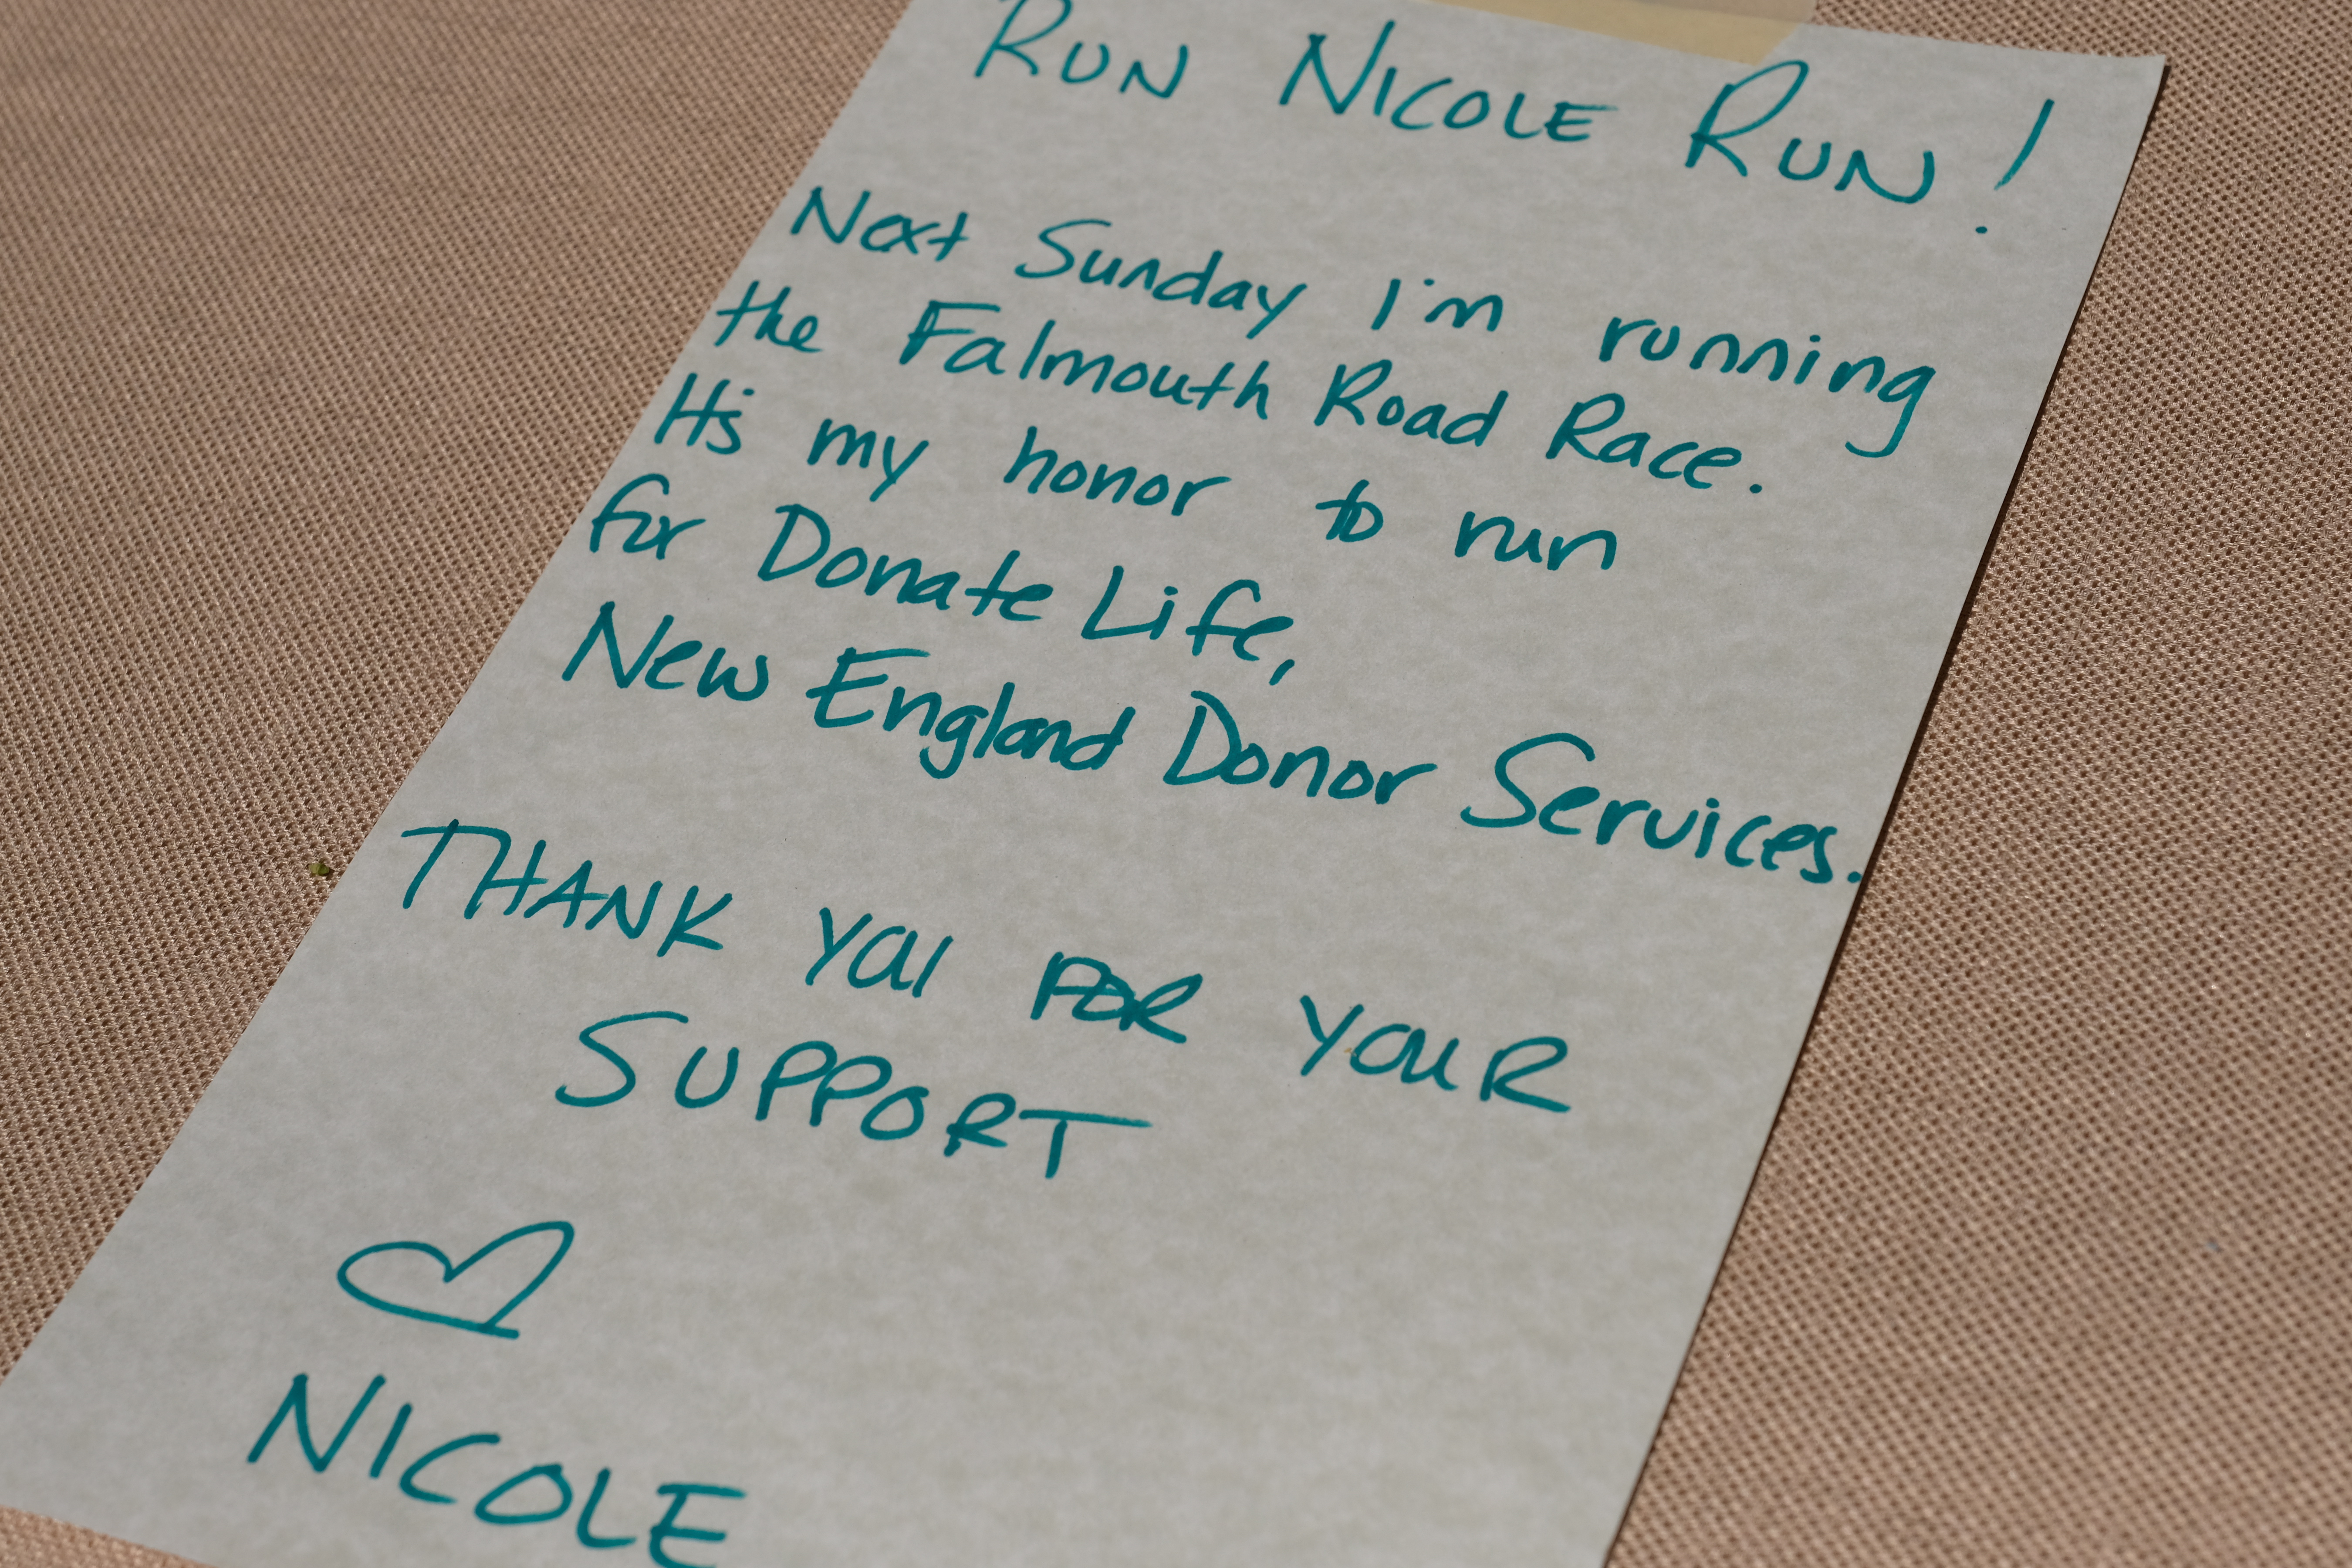 RUN NICOLE RUN!
Next Sunday I'm running
the Falmouth Road Race.
It's my honor to run
for Donate Life,
New England Donor Services.
THANK YOU FOR YOUR
SUPPORT
NICOLE